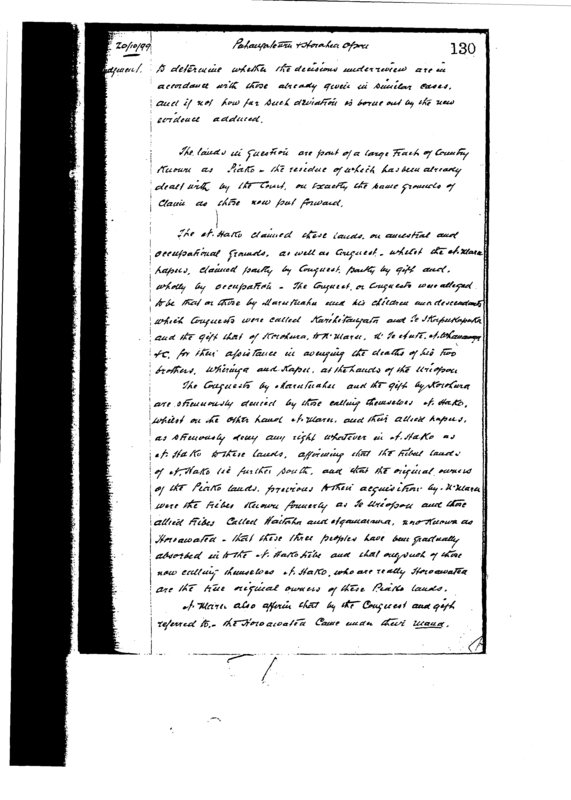 20/10/99
130
to determine whether the decisions under review are in
accordance with those already given in similar cases.
and if not how far such deviation is borne out by the new
evidence adduced.
The lands in question are part of a large Tract of Country
Known as Piako - the residue of which has been already
dealt with by the Court, on exactly the same grounds of
Claim as those now put forward.
The N. Hako claimed these lands, on ancestral and
occupational grounds, as well as Conquest - whilst the N. Maru
hapus, claimed partly by Conquest, partly by gift and,
wholly by occupation - The Conquest, or Conquests were alleged
to be that or those by Marutuahu and his children and descendants
which Conquests were called Karihitangata and Te
and the gift that of Korohura, to N. Maru,
&c, for their assistance in avenging the deaths of his two
brothers, Whiringa and Kapu, at the hands of the Uriopou
The Conquests by Marutuahu and the gift by Korohura
are strenuously denied by those calling themselves N. Hako,
whilst on the other hand N. Maru, and their allied hapus,
as strenuously deny any right whatever in N. Hako as
N. Hako to these lands, affirming that the tribal lands
of N. Hako lie further South, and that the original owners
of the Piako lands, previous to their acquisition by N. Maru
were the tribes Known formerly as Te Uriopou and those
allied Tribes Called Waitaha and Ngamarama, now Known as
Horoawatea - that these three peoples have been gradually
absorbed into the N. Hako tribe and that only such of those
now calling themselves N. Hako, who are really Horoawatea
are the true original owners of these Piako lands.
N. Maru also affirm that by the Conquest and gift
referred to, - the Horoawatea Came under their mana.